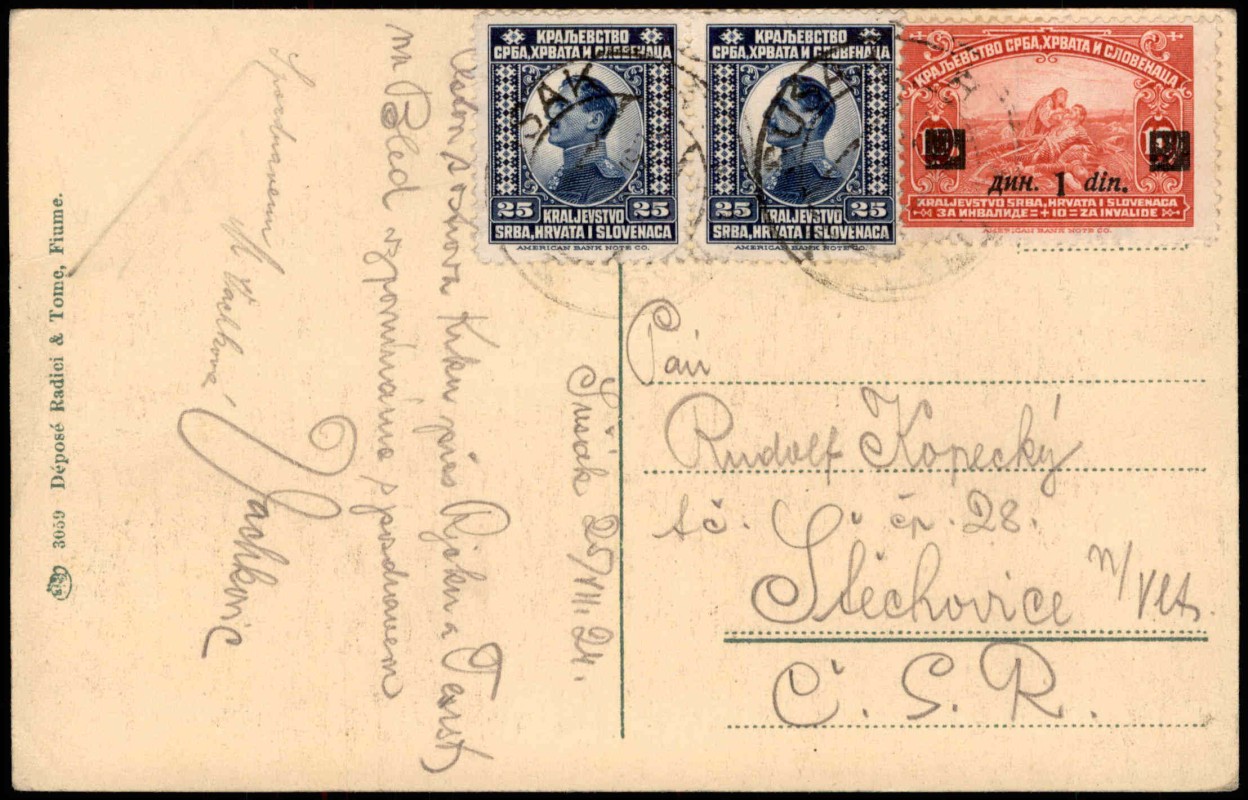 КРАЉЕВСТВО
СРБА, ХРВАТА И СЛОВЕНАЦА
25 KRALJEVSTVO 25
SRBA, HRVATA I SLOVENACA
AMERICAN BANK NOTE CO.
КРАЉЕВСТВО
СРБА, ХРВАТА И СЛОВЕНАЦА
25 KRALJEVSTVO 25
SRBA, HRVATA I SLOVENACA
AMERICAN BANK NOTE CO.
КРАЉЕВСТВО СРБА, ХРВАТА И СЛОВЕНАЦА
дин. 1 din.
KRALJEVSTVO SRBA, HRVATA I SLOVENACA
ЗА ИНВАЛИДЕ = + 10 = ZA INVALIDE
AMERICAN BANK NOTE CO.
Sušak 25/VIII. 24.
Cestou s ostrova Krku přes Rjeku a Terst
na Bled vzpomínáme s pozdravem
Jachkovic
3059 Déposé Radici & Tome, Fiume.
Pan
Rudolf Kopecký
t č. čp. 28.
Štěchovice n/Vlt.
Č. S. R.